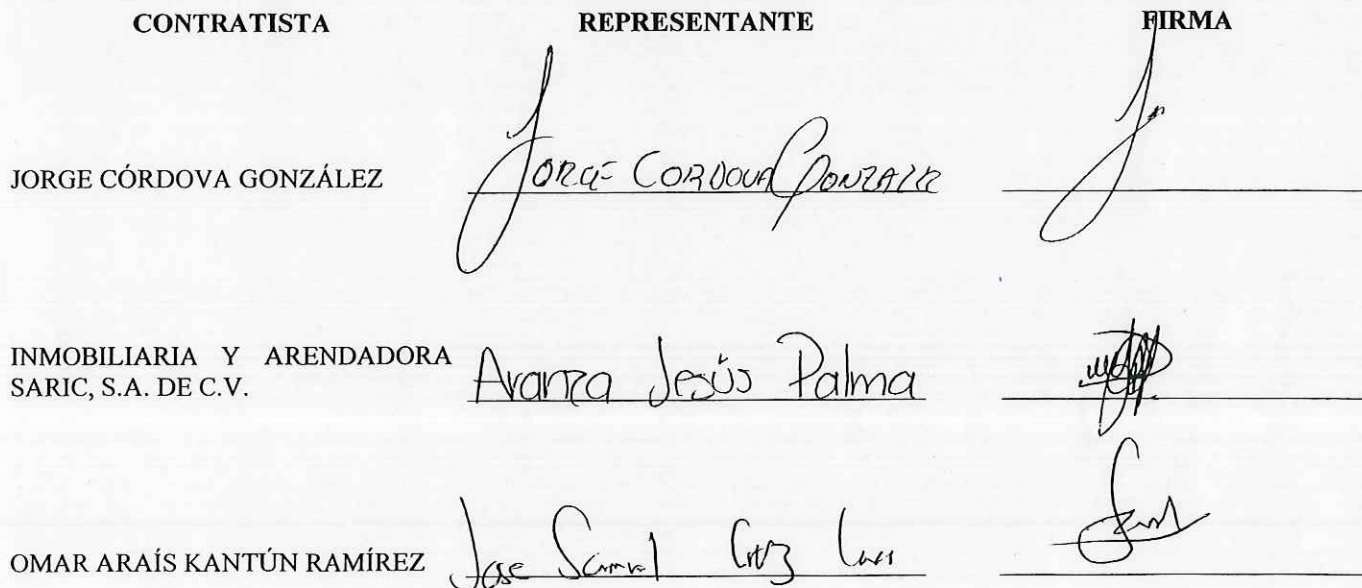 CONTRATISTA REPRESENTANTE FIRMA
JORGE CÓRDOVA GONZÁLEZ JORGE CORDOVA GONZALEZ
INMOBILIARIA Y ARENDADORA
SARIC, S.A. DE C.V. Aranza Jesús Palma
OMAR ARAÍS KANTÚN RAMÍREZ Jose Samuel Cruz